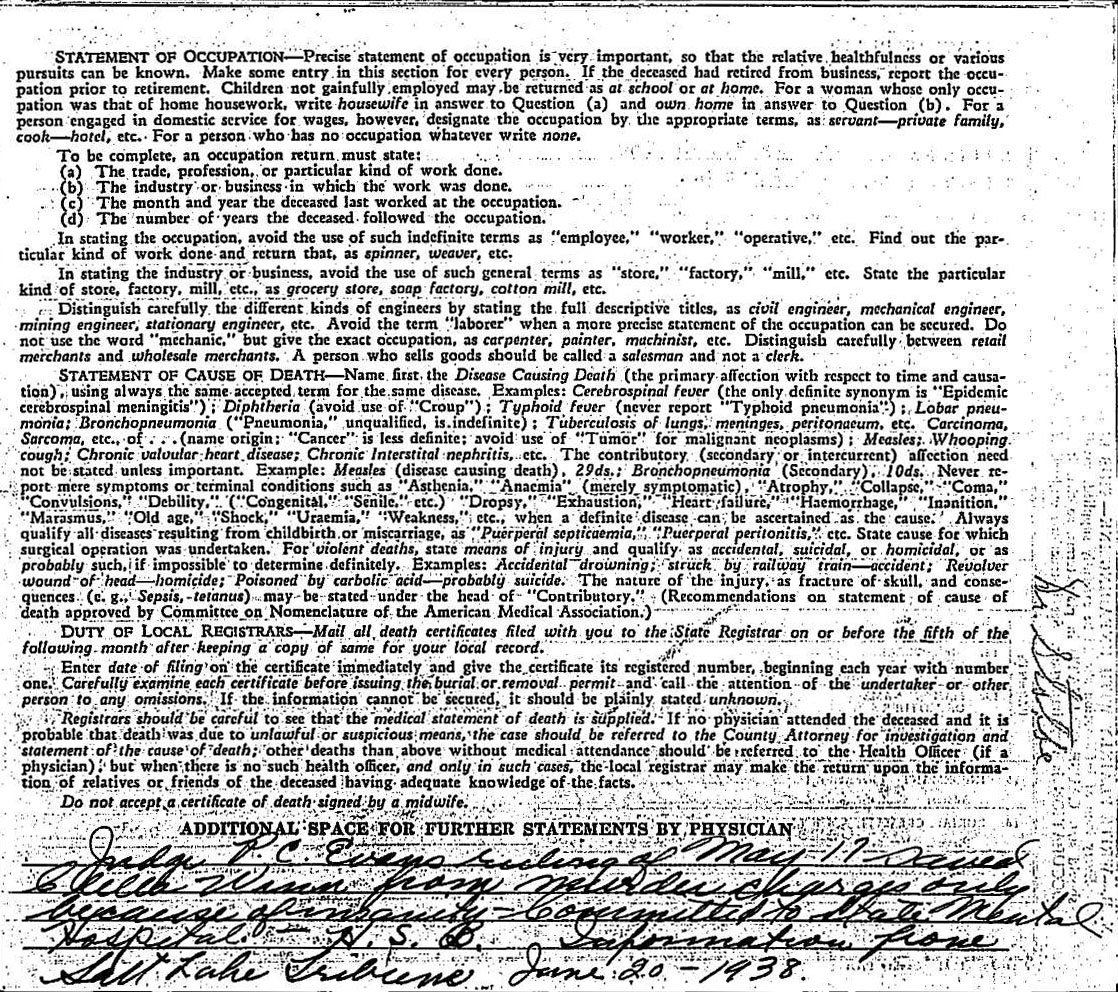 STATEMENT OF OCCUPATION—Precise statement of occupation is very important, so that the relative healthfulness or various
pursuits can be known. Make some entry in this section for every person. If the deceased had retired from business, report the occu-
pation prior to retirement. Children not gainfully employed may be returned as at school or at home. For a woman whose only occu-
pation was that of home housework, write housewife in answer to Question (a) and own home in answer to Question (b). For a
person engaged in domestic service for wages, however, designate the occupation by the appropriate terms, as servant—private family,
cook—hotel, etc. For a person who has no occupation whatever write none.
To be complete, an occupation return must state:
(a) The trade, profession, or particular kind of work done.
(b) The industry or business in which the work was done.
(c) The month and year the deceased last worked at the occupation.
(d) The number of years the deceased followed the occupation.
In stating the occupation, avoid the use of such indefinite terms as "employee," "worker," "operative," etc. Find out the par-
ticular kind of work done and return that, as spinner, weaver, etc.
In stating the industry or business, avoid the use of such general terms as "store," "factory," "mill," etc. State the particular
kind of store, factory, mill, etc., as grocery store, soap factory, cotton mill, etc.
Distinguish carefully the different kinds of engineers by stating the full descriptive titles, as civil engineer, mechanical engineer,
mining engineer, stationary engineer, etc. Avoid the term "laborer" when a more precise statement of the occupation can be secured. Do
not use the word "mechanic," but give the exact occupation, as carpenter, painter, machinist, etc. Distinguish carefully between retail
merchants and wholesale merchants. A person who sells goods should be called a salesman and not a clerk.
STATEMENT OF CAUSE OF DEATH—Name first, the Disease Causing Death (the primary affection with respect to time and causa-
tion), using always the same accepted term for the same disease. Examples: Cerebrospinal fever (the only definite synonym is "Epidemic
cerebrospinal meningitis"); Diphtheria (avoid use of "Croup"); Typhoid fever (never report "Typhoid pneumonia"); Lobar pneu-
monia; Bronchopneumonia ("Pneumonia," unqualified, is indefinite); Tuberculosis of lungs, meninges, peritonaeum, etc. Carcinoma,
Sarcoma, etc., of . . . (name origin; "Cancer" is less definite; avoid use of "Tumor" for malignant neoplasms); Measles; Whooping
cough; Chronic valvular heart disease; Chronic Interstital nephritis, etc. The contributory (secondary or intercurrent) affection need
not be stated unless important. Example: Measles (disease causing death), 29ds.; Bronchopneumonia (Secondary), 10ds. Never re-
port mere symptoms or terminal conditions such as "Asthenia," "Anaemia" (merely symptomatic), "Atrophy," "Collapse," "Coma,"
"Convulsions," "Debility," ("Congenital," "Senile," etc.) "Dropsy," "Exhaustion," "Heart failure," "Haemorrhage," "Inanition,"
"Marasmus," "Old age," "Shock," "Uraemia," "Weakness," etc., when a definite disease can be ascertained as the cause. Always
qualify all diseases resulting from childbirth or miscarriage, as "Puerperal septicaemia," "Puerperal peritonitis," etc. State cause for which
surgical operation was undertaken. For violent deaths, state means of injury and qualify as accidental, suicidal, or homicidal, or as
probably such, if impossible to determine definitely. Examples: Accidental drowning; struck by railway train—accident; Revolver
wound of head—homicide; Poisoned by carbolic acid—probably suicide. The nature of the injury, as fracture of skull, and conse-
quences (e. g., Sepsis, tetanus) may be stated under the head of "Contributory." (Recommendations on statement of cause of
death approved by Committee on Nomenclature of the American Medical Association.)
DUTY OF LOCAL REGISTRARS—Mail all death certificates filed with you to the State Registrar on or before the fifth of the
following month after keeping a copy of same for your local record.
Enter date of filing on the certificate immediately and give the certificate its registered number, beginning each year with number
one. Carefully examine each certificate before issuing the burial or removal permit and call the attention of the undertaker or other
person to any omissions. If the information cannot be secured, it should be plainly stated unknown.
Registrars should be careful to see that the medical statement of death is supplied. If no physician attended the deceased and it is
probable that death was due to unlawful or suspicious means, the case should be referred to the County Attorney for investigation and
statement of the cause of death; other deaths than above without medical attendance should be referred to the Health Officer (if a
physician); but when there is no such health officer, and only in such cases, the local registrar may make the return upon the informa-
tion of relatives or friends of the deceased having adequate knowledge of the facts.
Do not accept a certificate of death signed by a midwife.
ADDITIONAL SPACE FOR FURTHER STATEMENTS BY PHYSICIAN
Judge P. C. Evans ruling of May 17 saved
Winn from murder charges only
because of insanity - Committed to State Mental
Hospital. - H. S. B. Information from
Salt Lake Tribune June 20 - 1938.